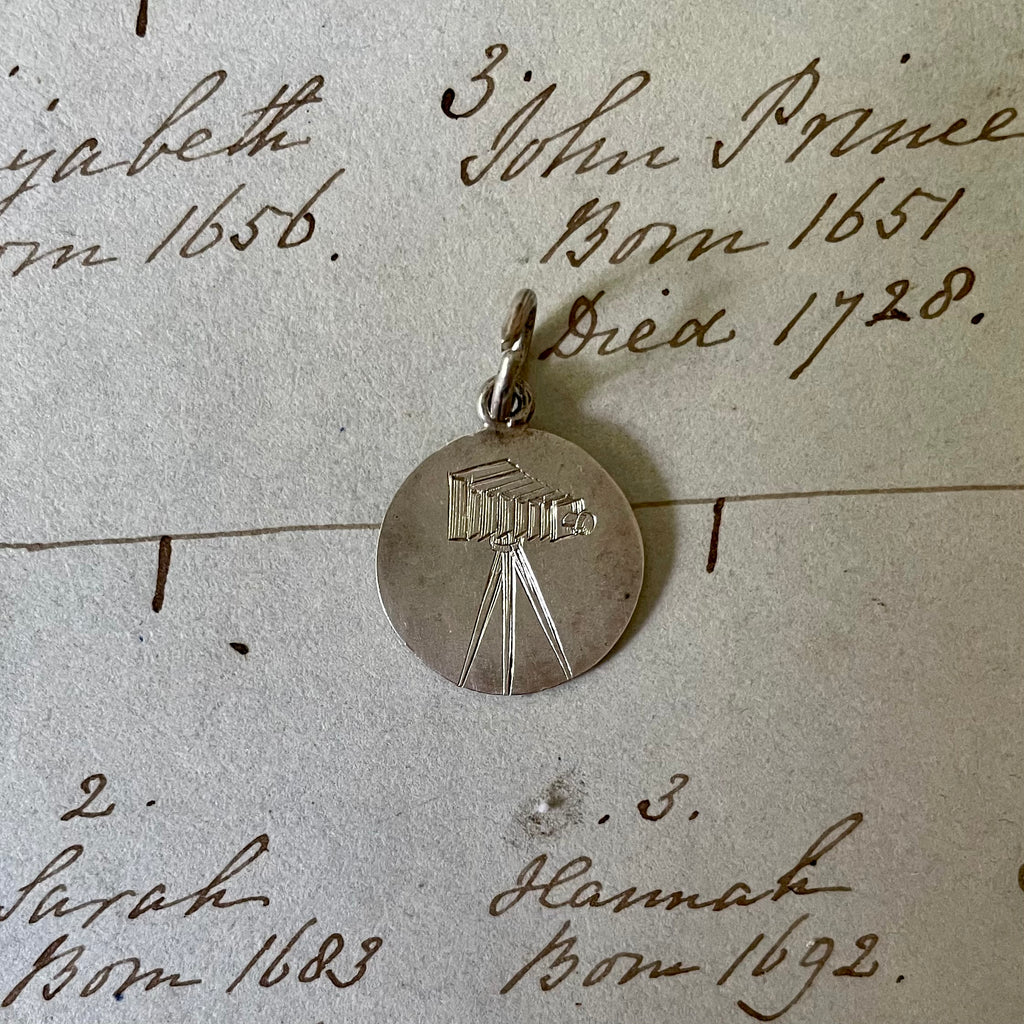 3.
izabeth
John Prince
orn 1656.
Born 1651
Died 1728.
2.
3.
Sarah
Hannah
Born 1683
Born 1692.